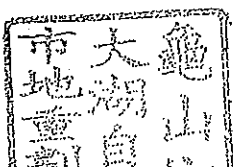 龜山
大湖自
市地重劃